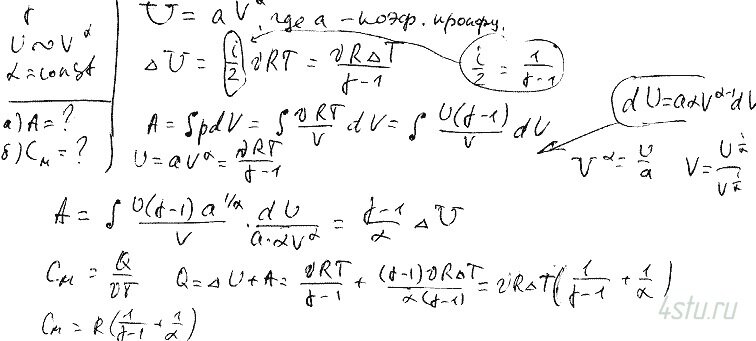 γ
U ~ V^α
α = const
а) A = ?
б) C_м = ?
U = aV^α, где a - коэф. пропорц.
ΔU = i/2 νRT = νRΔT/(γ-1)
i/2 = 1/(γ-1)
A = ∫pdV = ∫ νRT/V dV = ∫ U(γ-1)/V dV
dU = aαV^(α-1)dV
U = aV^α = νRT/(γ-1)
V^α = U/a
A = ∫ U(γ-1)a^(1/α)/V · dU/(a·αV^α) = (γ-1)/α ΔU
C_м = Q/νT
Q = ΔU + A = νRT/(γ-1) + (γ-1)νRΔT/(α(γ-1)) = νRΔT(1/(γ-1) + 1/α)
C_м = R(1/(γ-1) + 1/α)
4stu.ru